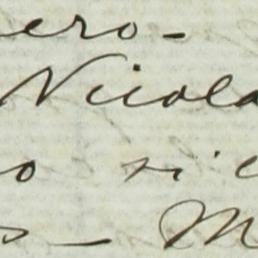 ero-
Nicola
o si
s - M